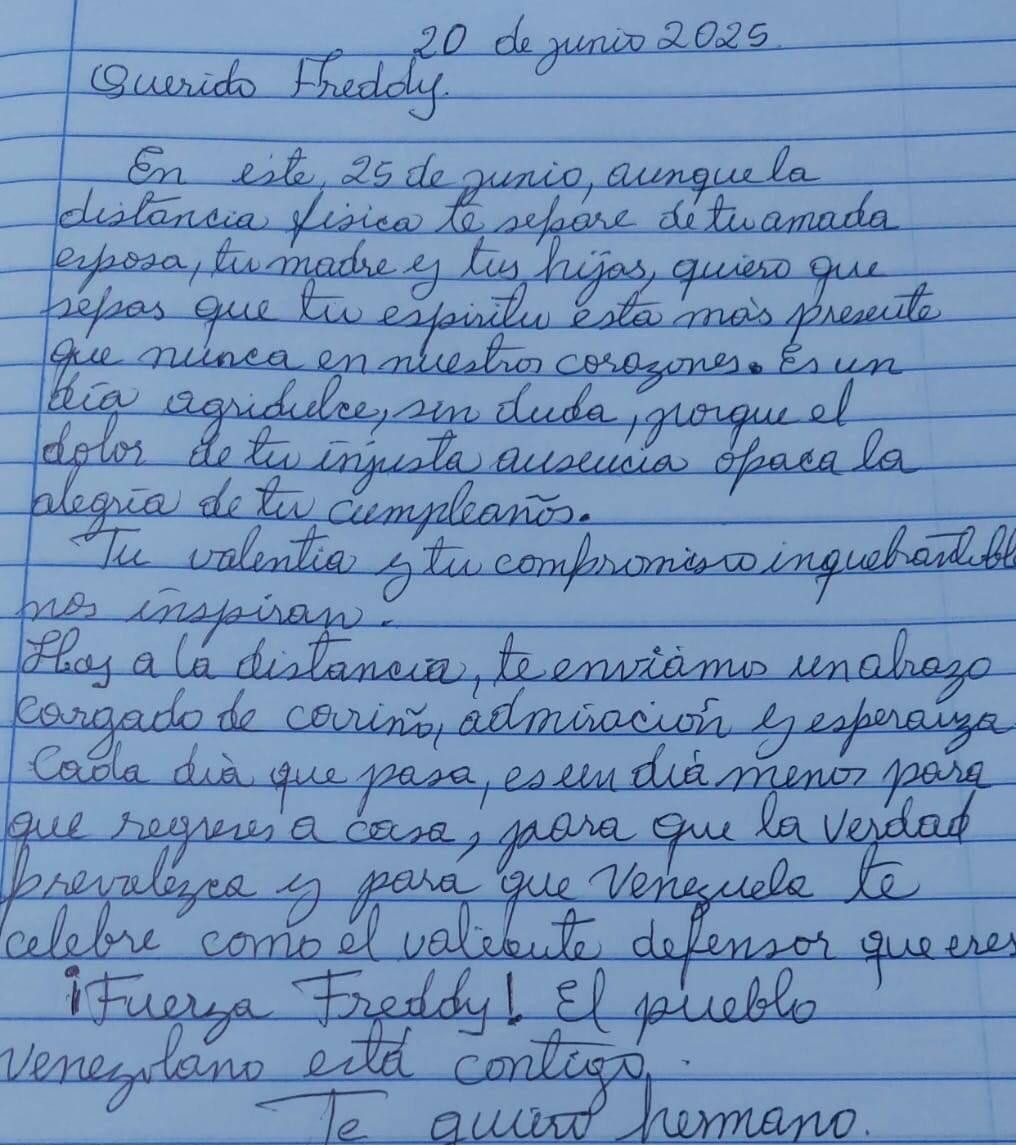 20 de junio 2025.
Querido Freddy.
En este, 25 de junio, aunque la
distancia física te separe de tu amada
esposa, tu madre y tus hijas, quiero que
sepas que tu espiritu esta más presente
que nunca en nuestros corazones. Es un
día agridulce, sin duda, porque el
dolor de tu injusta ausencia opaca la
alegría de tu cumpleaños.
Tu valentia y tu compromiso inquebrantable
nos inspiran.
Hoy a la distancia, te enviamos un abrazo
cargado de cariño, admiración y esperanza
Cada día que pasa, es un día menos para
que regreses a casa, para que la verdad
prevalezca y para que Venezuela te
celebre como el valiente defensor que eres
¡Fuerza Freddy! El pueblo
venezolano está contigo.
Te quiero hermano.